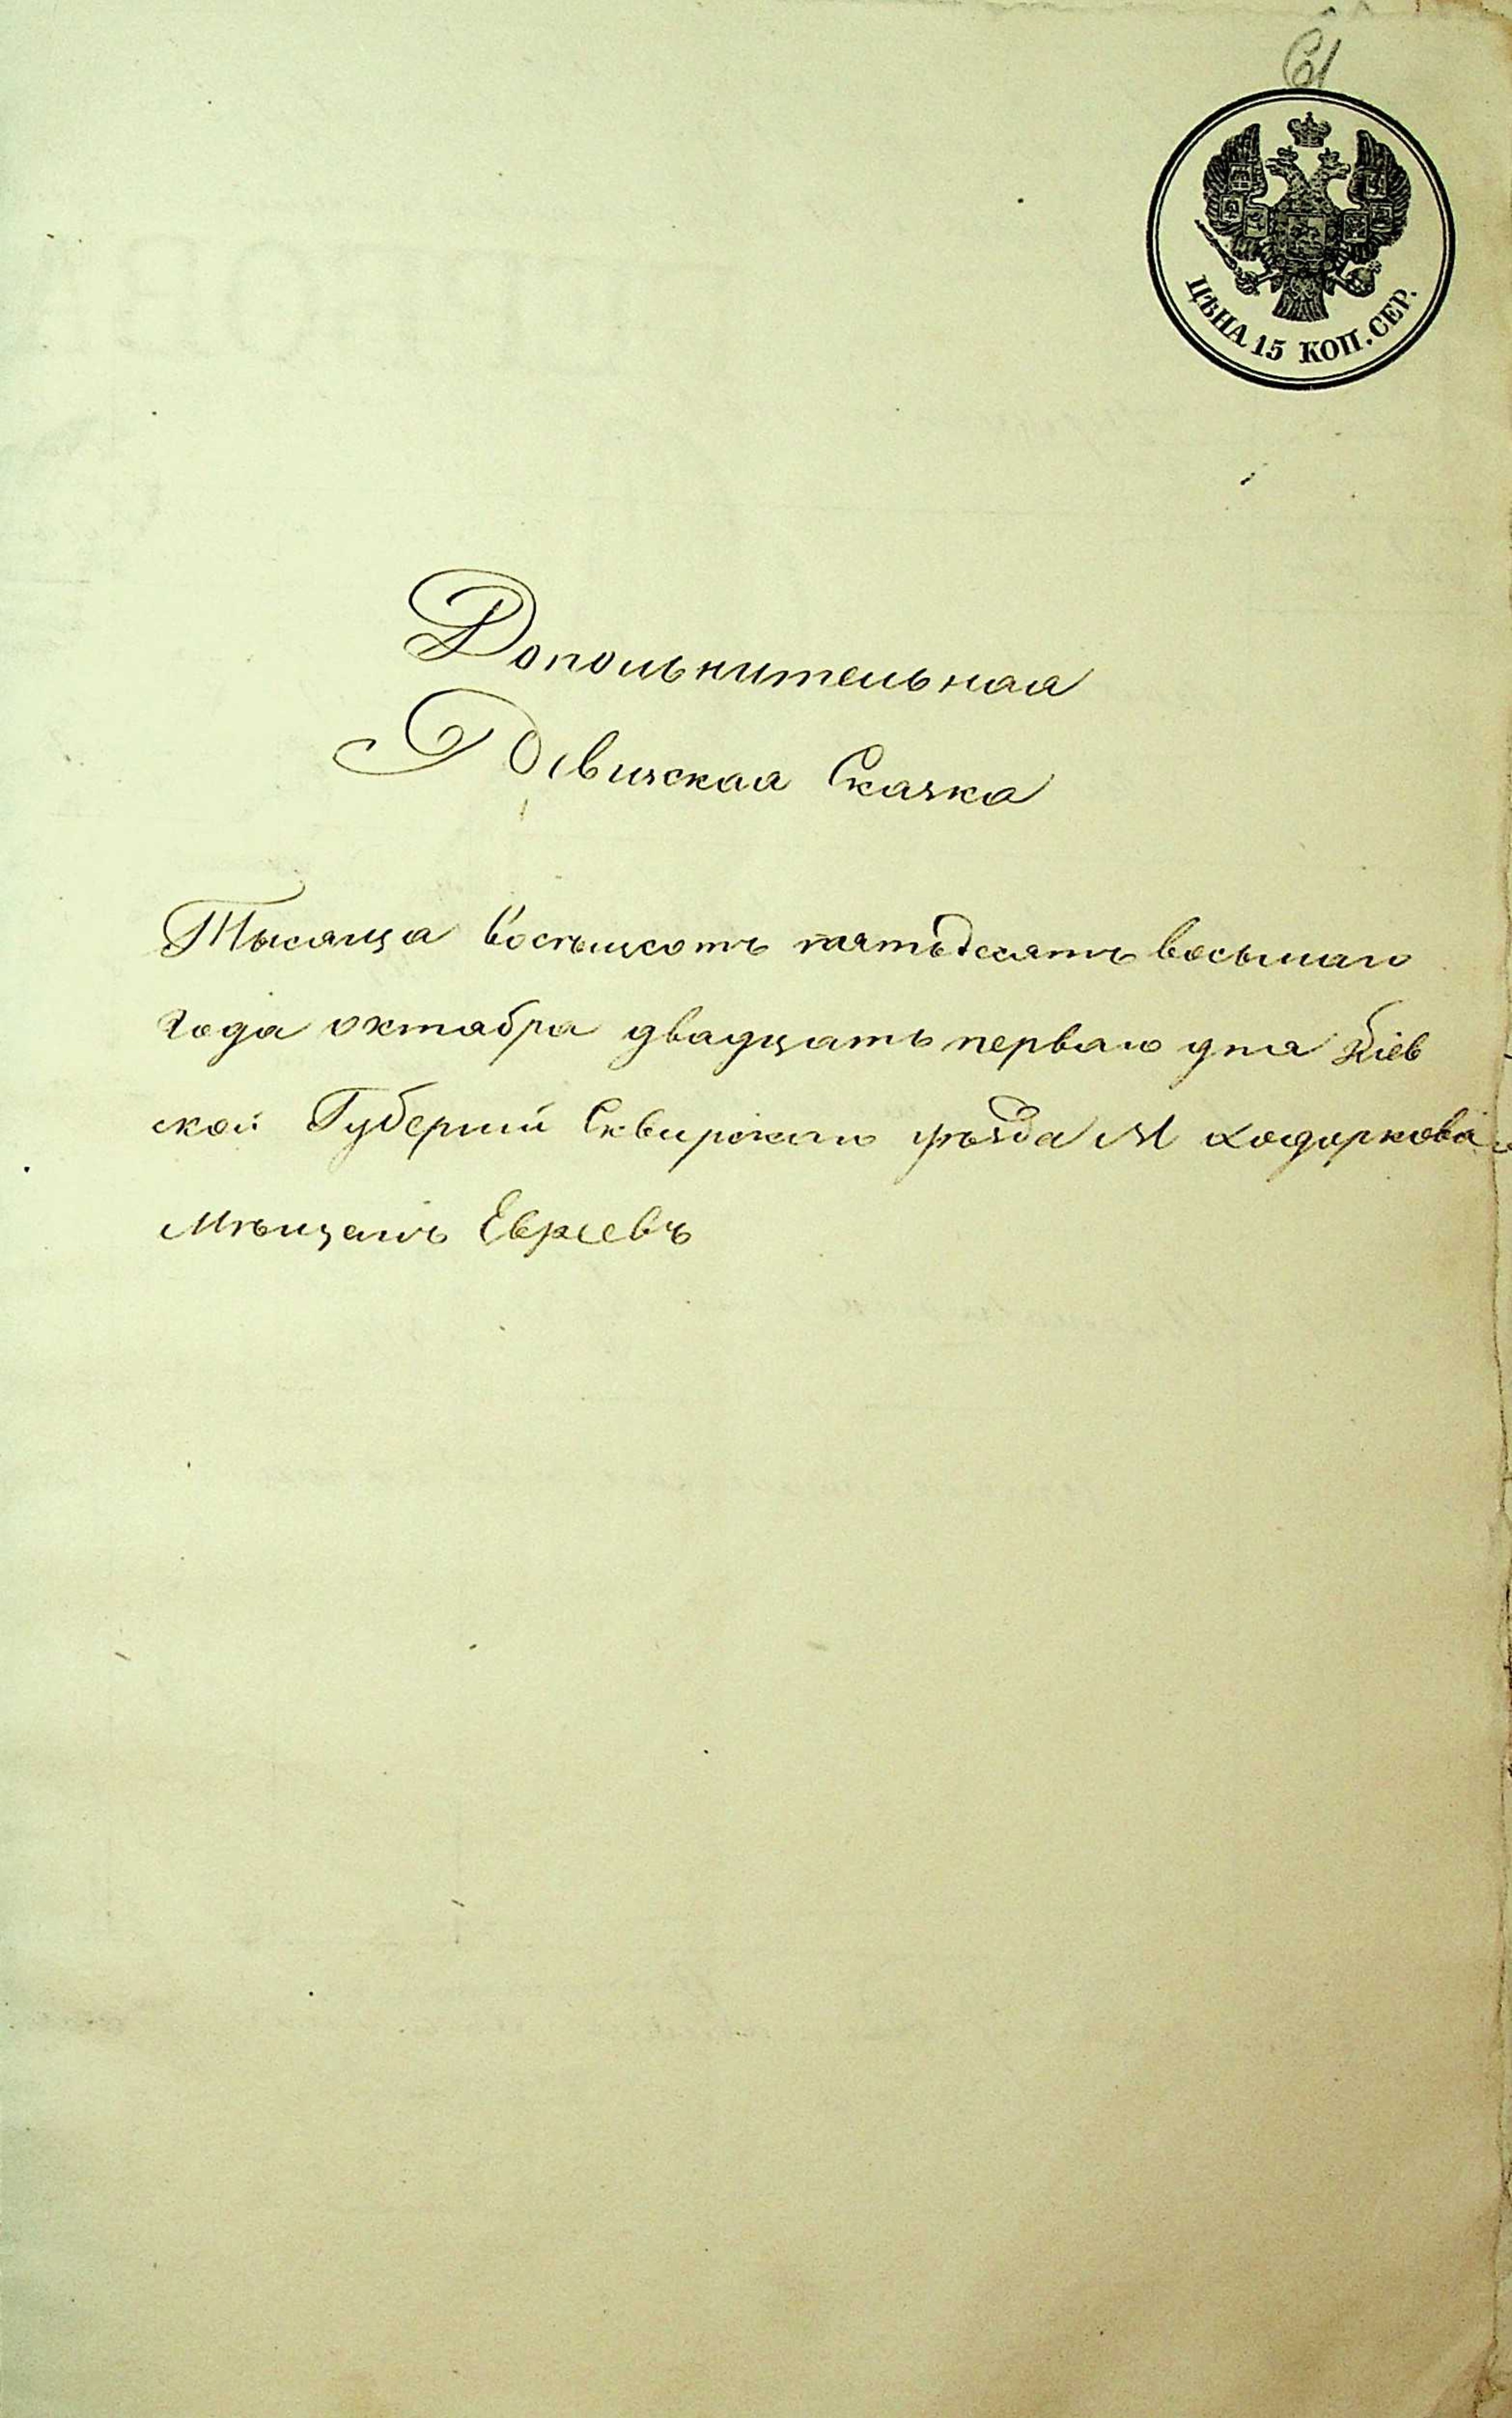 61
ЦѢНА 15 КОП. СЕР.
Дополънительная
Ревизская Сказка
Тысяща Восѣмсотъ пятьдесятъ восьмаго
года октабра двадцать перваго дня Кіев
ской Губерніи Сквирскаго уѣзда М Ходоркова
Мѣщанъ Евреевъ